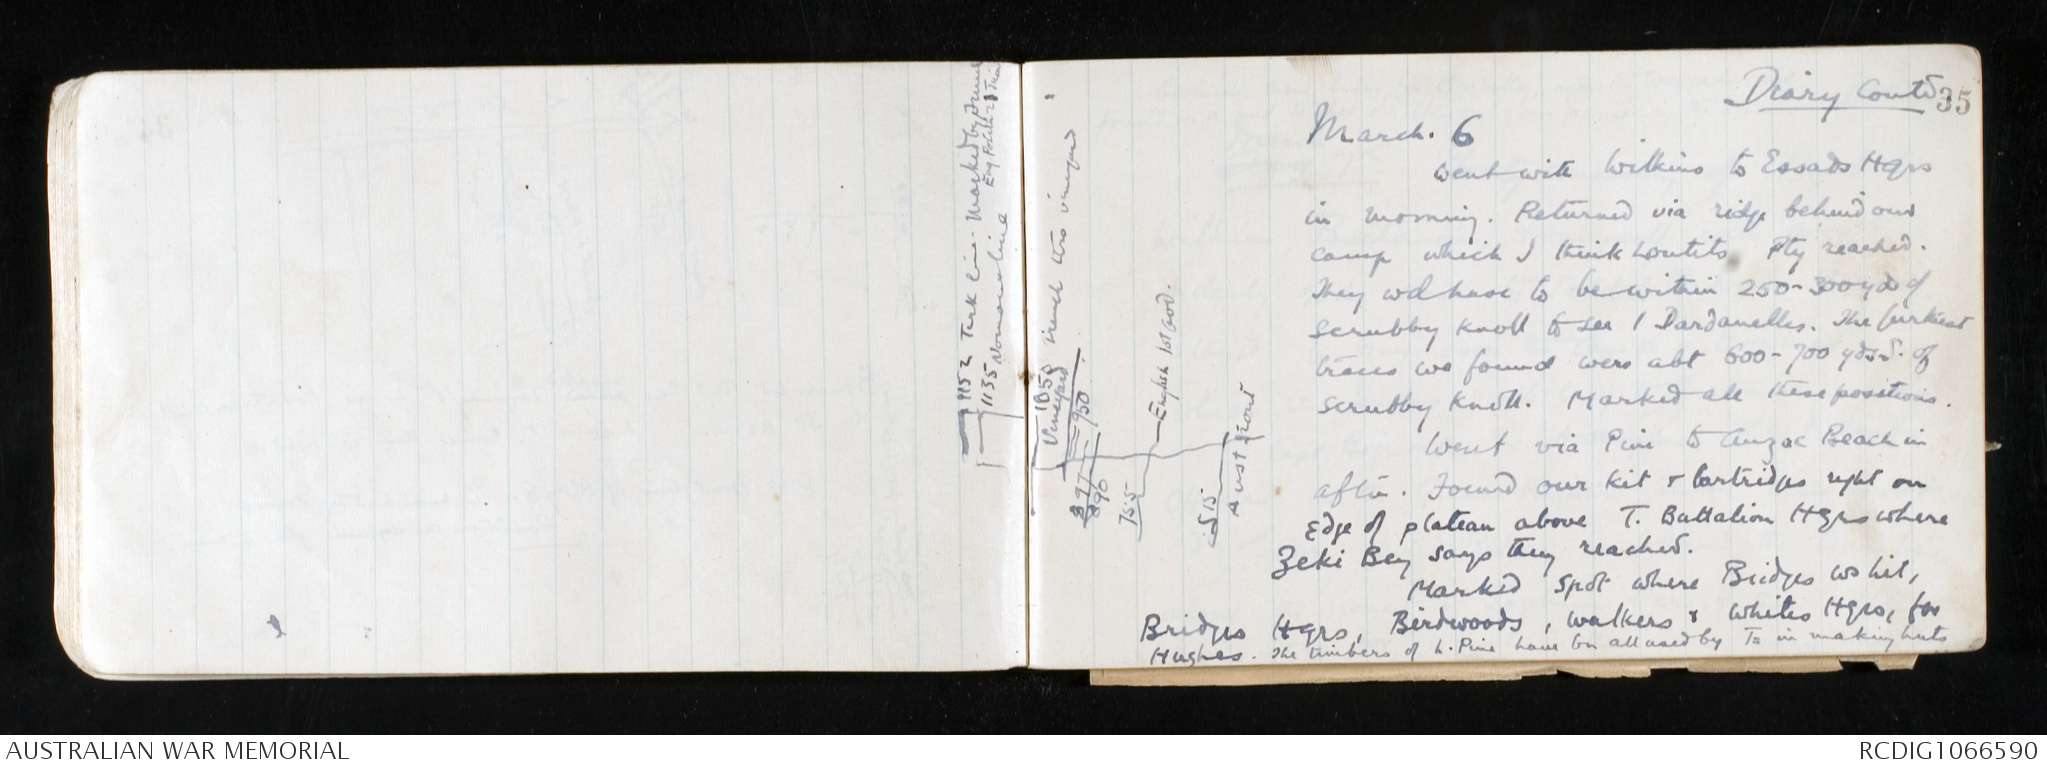 Diary Contd 35
March. 6
Went with Wilkins to Essads Hqrs
in morning. Returned via ridge behind our
camp which I think Loutits Pty reached.
They wd have to be within 250-300 yds of
Scrubby Knoll to see / Dardanelles. The furthest
traces we found were abt 600-700 yds S. of
Scrubby Knoll. Marked all these positions.
Went via Pine to Anzac Beach in
aftn. Found our kit & cartridges right on
edge of plateau above T. Battalion Hqrs where
Zeki Bey says they reached.
Marked spot where Bridges ws hit,
Bridges Hqrs, Birdwoods, Walkers & Whites Hqrs, for
Hughes. The timbers of L. Pine have bn all used by Ts in making huts
1152 Turk line - Marked by trench
1135 Nomansland
Vineyard
1850
trench thro vineyard
950
890
755
English 1st God.
515
Aust Front
AUSTRALIAN WAR MEMORIAL
RCDIG1066590